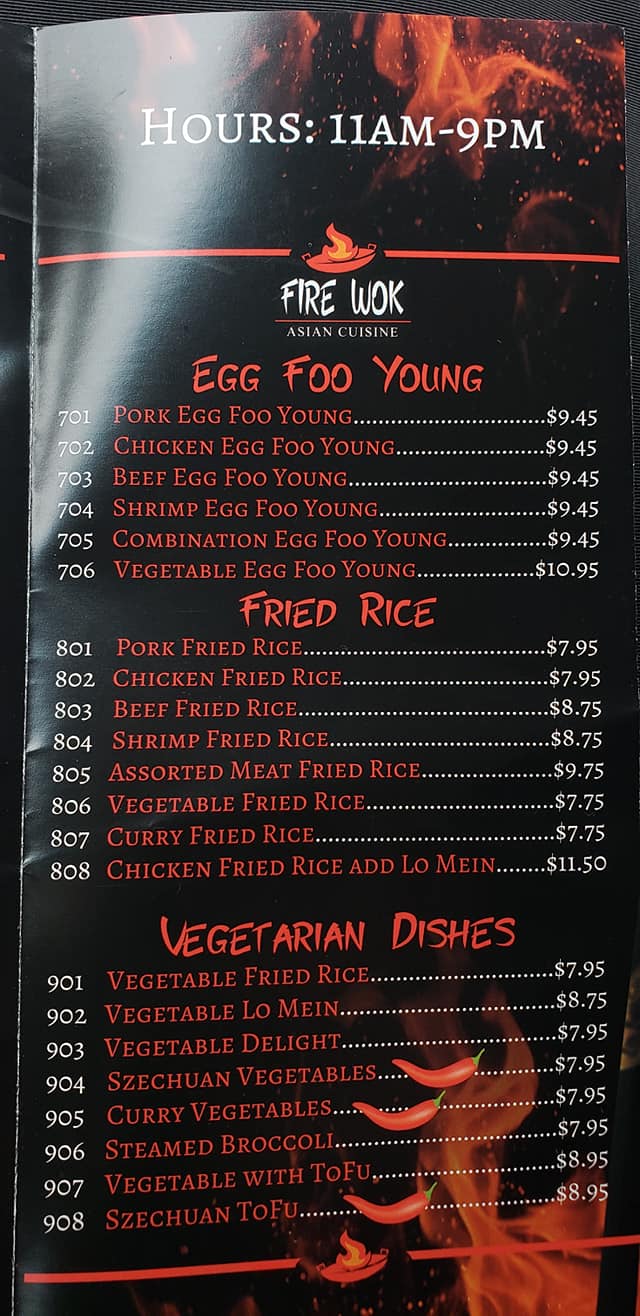 Hours: 11AM-9PM
FIRE WOK
ASIAN CUISINE
Egg Foo Young
701 Pork Egg Foo Young....................................$9.45
702 Chicken Egg Foo Young............................$9.45
703 Beef Egg Foo Young.....................................$9.45
704 Shrimp Egg Foo Young...............................$9.45
705 Combination Egg Foo Young..................$9.45
706 Vegetable Egg Foo Young......................$10.95
Fried Rice
801 Pork Fried Rice.............................................$7.95
802 Chicken Fried Rice.......................................$7.95
803 Beef Fried Rice..............................................$8.75
804 Shrimp Fried Rice.........................................$8.75
805 Assorted Meat Fried Rice........................$9.75
806 Vegetable Fried Rice..................................$7.75
807 Curry Fried Rice...........................................$7.75
808 Chicken Fried Rice add Lo Mein........$11.50
Vegetarian Dishes
901 Vegetable Fried Rice..................................$7.95
902 Vegetable Lo Mein.......................................$8.75
903 Vegetable Delight.......................................$7.95
904 Szechuan Vegetables..................................$7.95
905 Curry Vegetables.........................................$7.95
906 Steamed Broccoli.........................................$7.95
907 Vegetable with ToFu.................................$8.95
908 Szechuan ToFu..............................................$8.95